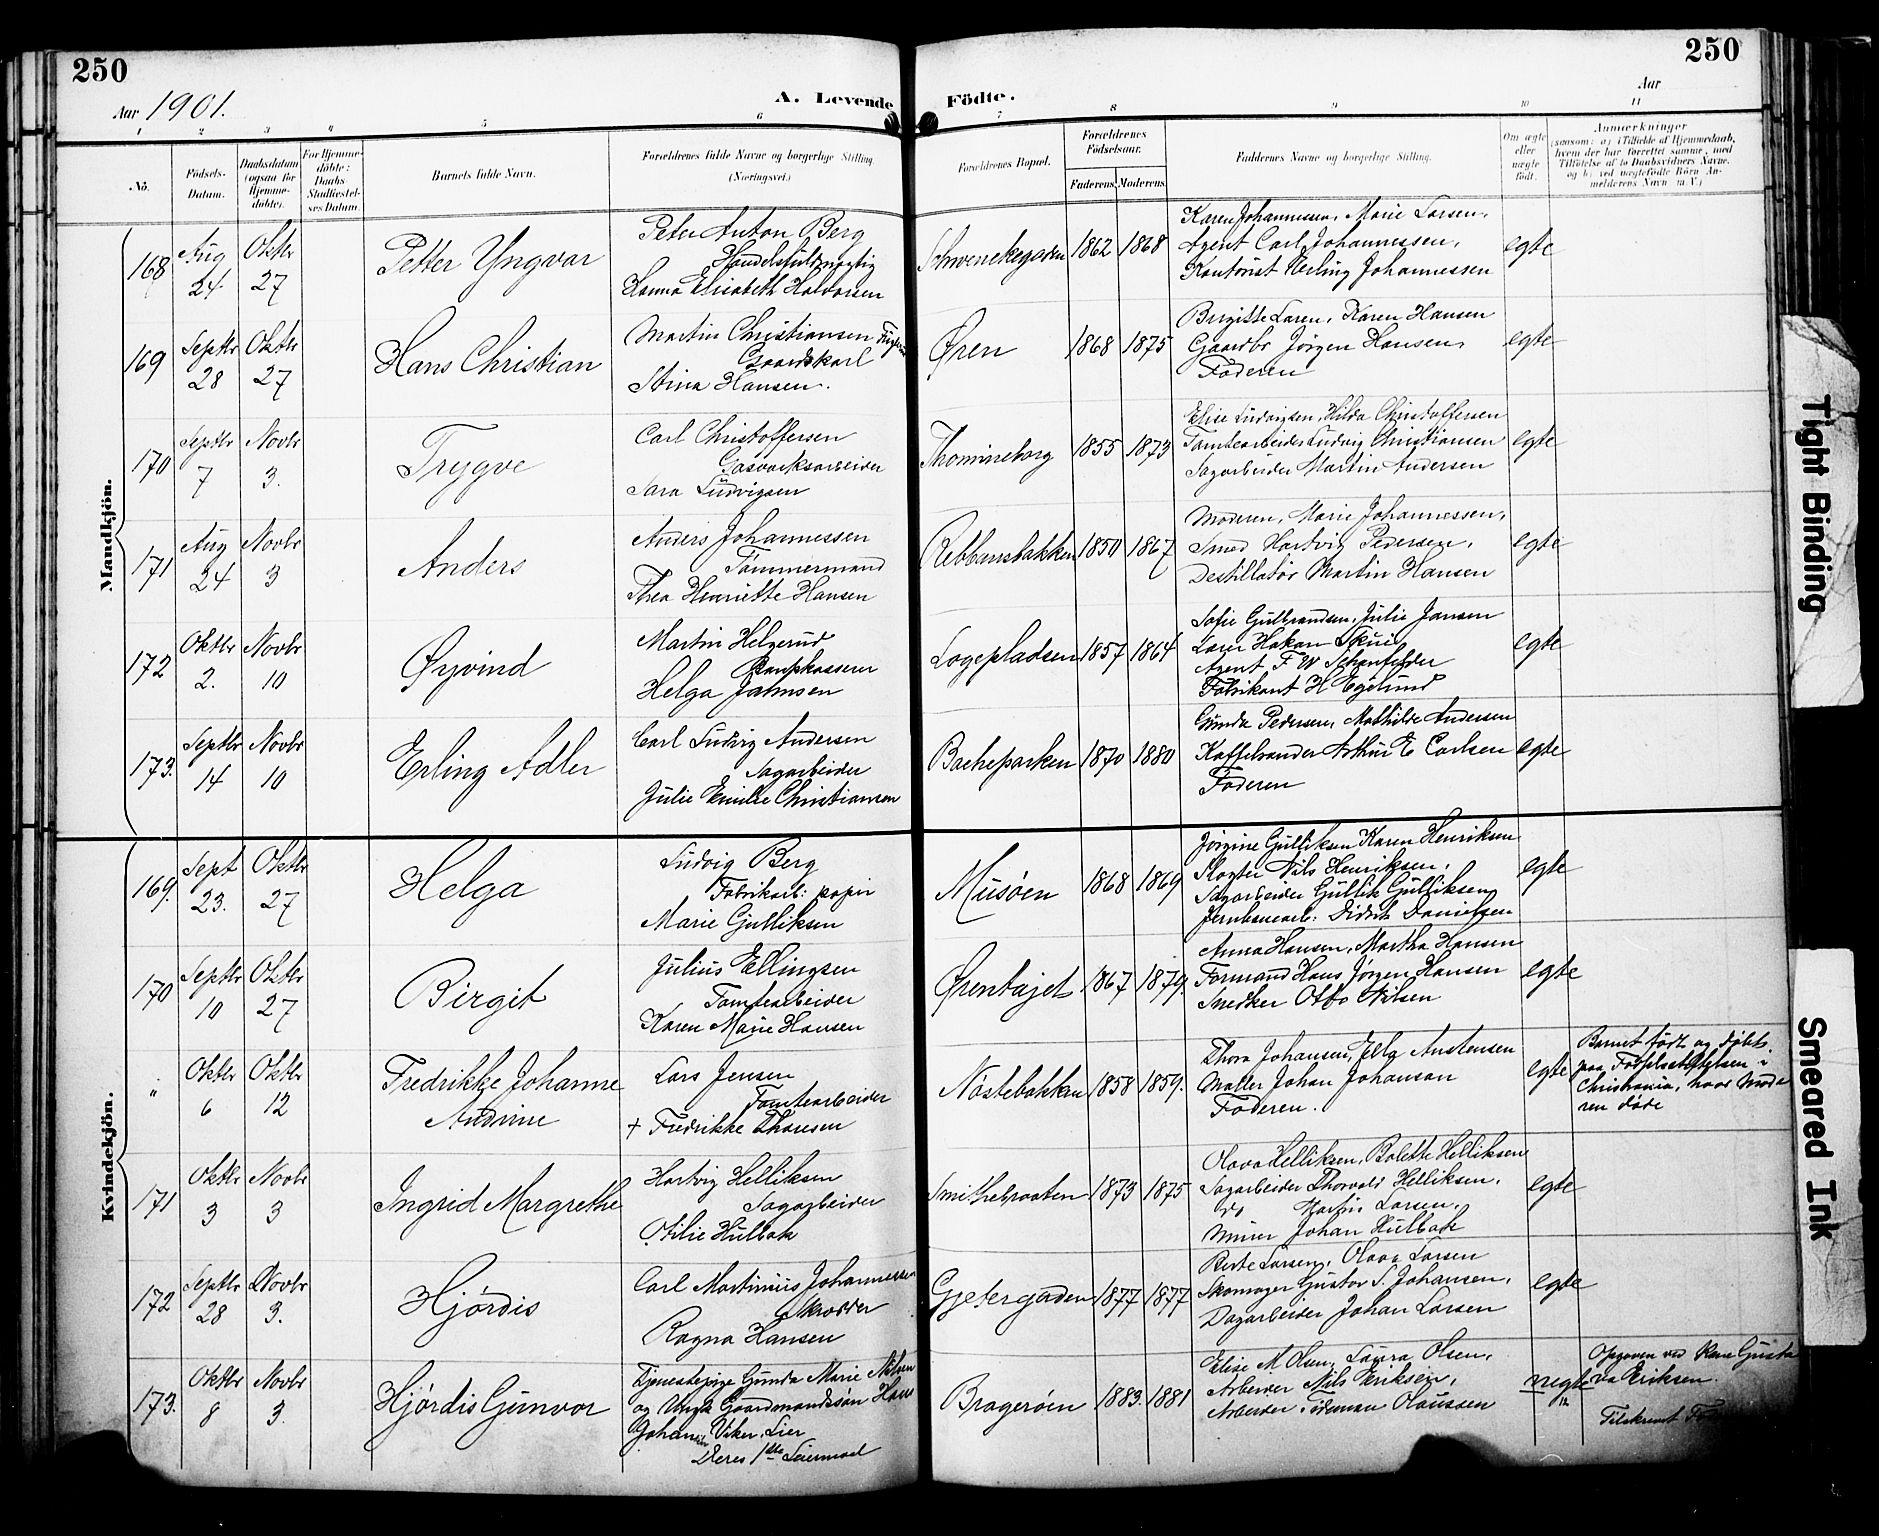 250
250
Aar 1901.
A. Levende Födte.
Aar
1 2 3 4 5 6 7 8 9 10 11
No.
Födsels-Datum.
Daabsdatum (ogsaa for Hjemme-döbte).
For Hjemme-döbte: Daabs-Stadfæstel-ses Datum.
Barnets fulde Navn.
Forældrenes fulde Navne og borgerlige Stilling. (Næringsvei.)
Forældrenes Bopæl.
Forældrenes Födselsaar.
Faderens. Moderens.
Faddernes Navne og borgerlige Stilling.
Om ægte eller uægte födt.
Anmærkninger
(saasom: a) i Tilfælde af Hjemmedaab, hvem der har forrettet samme, med Tilföielse af to Daabsvidners Navne. og b) ved uægtefödte Börn An-melderens Navn m. V.)
Mandkjön.
168 Aug 24 Oktbr 27 Petter Yngvar
Peter Anton Berg
Handelsfuldmægtig
Hanna Elisabeth Halvorsen
Schwenckegaden 1862 1868
Karen Johannessen, Marie Larsen,
Agent Carl Johannessen,
Kontorist Herling Johannessen
egte
169 Septbr 28 Oktbr 27 Hans Christian
Martin Christiansen
Gaardskarl
Stina Hansen.
Øren 1868 1875
Brigitte Laren, Karen Hansen
Gaardbr Jørgen Hansen,
Faderen
egte
170 Septbr 7 Novbr 3. Trygve
Carl Christoffersen
Gasværksarbeider
Sara Ludvigsen
Thomineborg 1855 1873
Elise Ludvigsen, Hilda Christoffersen
Tomtearbeider Ludvig Christiansen
Sagarbeider Martin Andersen
egte
171 Aug 24 Novbr 3 Anders
Anders Johannessen
Tømmermand
Thea Henriette Hansen
Rebbansbakken 1850 1867
Moderen, Marie Johannessen,
Smed Hartvig Pedersen,
Destillatør Martin Hansen
egte
172 Oktbr 2. Novbr 10 Øyvind
Martin Helgerud
Helga Jahnsen
Logepladsen 1857 1864
Sofie Gulbrandsen, Julie Jansen
Lærer Hakon Skui,
Agent F W Schønfelder
Fabrikant H Egelund
egte
173. Septbr 14 Novbr 10 Erling Adler
Carl Ludvig Andersen
Sagarbeider
Julie Emilie Christiansen
Bacheparken 1870 1880
Gunda Pedersen, Mathilde Andersen
Kaffebrænder Arthur E Carlsen
Faderen
egte
Kvindekjön.
169. Sept 23. Oktbr 27 Helga
Ludvig Berg
Fabrikarb: papir
Marie Gulliksen
Musøen 1868 1869
Jørgine Gulliksen Karen Henriksen
Slagter Nils Henriksen,
Sagarbeider Gullik Gulliksen,
Jernbanearb: Didrik Danielsen
egte
170 Septbr 10 Oktbr 27 Birgit
Julius Ellingsen
Tomtearbeider
Karen Marie Hansen
Ørentajet 1867 1879.
Anna Hansen, Martha Hansen
Formand Hans Jørgen Hansen
Snedker Otto Nilsen
egte
" Oktbr 6 Oktbr 12 Fredrikke Johanne
Andrine
Lars Jensen
Tomtearbeider
+ Fredrikke Thoresen
Nøstebakken 1858 1859.
Thora Johansen, Ella Austensen
Maler Johan Johanson
Faderen.
egte
Barnet født og døbt
paa Fødselsstiftelsen i
Christiania, hvor Mode
ren døde
171 Oktbr 3 Novbr 3 Ingrid Margrethe
Hartvig Helliksen
Sagarbeider
Otilie Hulbak
Smithebraaten 1873 1875
Olava Helliksen, Bolette Helliksen
Sagarbeider Thorvald Helliksen,
do Martin Larsen,
Murer Johan Hulbak
egte
172 Septbr 28 Novbr 3. Hjørdis
Carl Martinius Johannessen
Skrædder
Ragna Hansen
Gjetergaden 1877 1877
Berte Larsen, Olava Larsen
Skomager Gustav S. Johansen,
Dagarbeider Johan Larsen
egte
173. Oktbr 8 Novbr 3. Hjørdis Gunvor
Tjenestepige Gunda Marie Nilsen
og Ungk Gaardmandssøn Hans
Johansen Viker, Lier
Deres 1ste Leiermaal
Bragerøen 1883. 1881
Elise M Olsen, Laura Olsen,
Arbeider Nils Eriksen,
Arbeider Tideman Olaussen
uegte
Opgaven ved Kone Gusta
va Eriksen.
Tight Binding
Smeared Ink